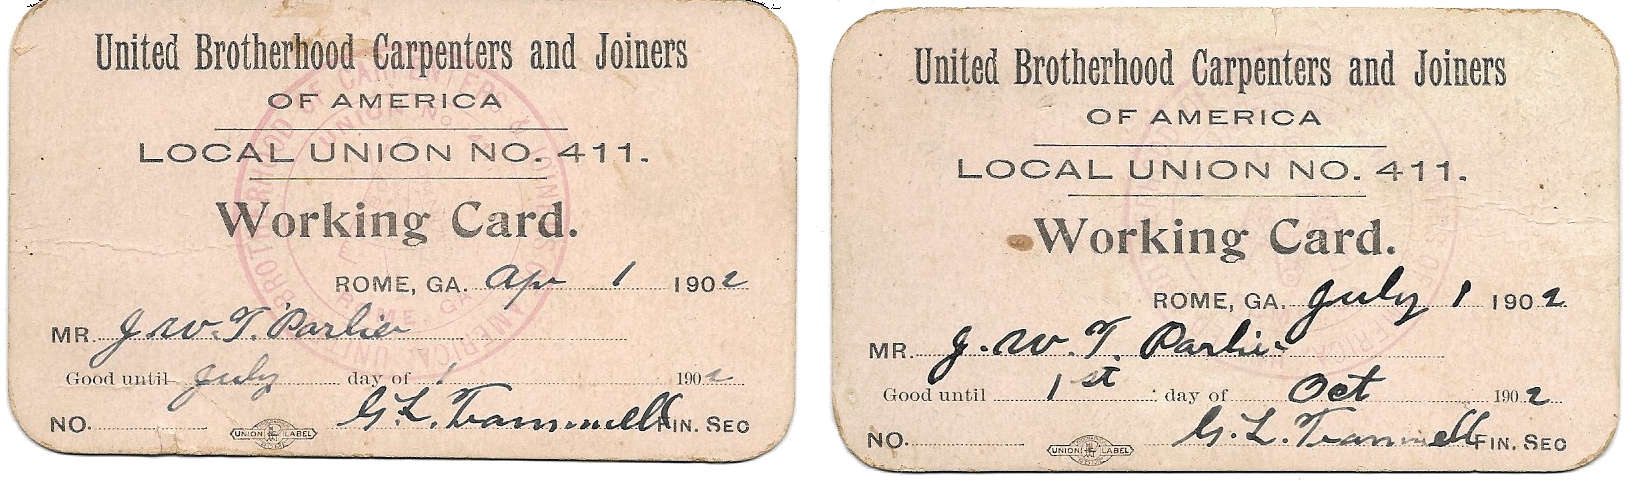 United Brotherhood Carpenters and Joiners
OF AMERICA
LOCAL UNION NO. 411.
Working Card.
ROME, GA. Apr 1 1902
MR. J. W. T. Parlier
Good until July day of 1 1902
NO. G. L. Trammell FIN. SEC
UNION LABEL
BROTHERHOOD OF CARPENTERS & JOINERS OF AMERICA
UNION No 4
ROME GA
United Brotherhood Carpenters and Joiners
OF AMERICA
LOCAL UNION NO. 411.
Working Card.
ROME, GA. July 1 1902
MR. J. W. T. Parlier
Good until 1st day of Oct 1902
NO. G. L. Trammell FIN. SEC
UNION LABEL